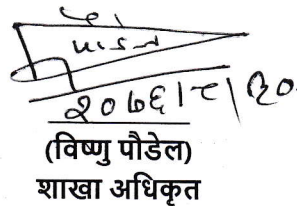 २०७६।८।२०
(विष्णु पौडेल)
शाखा अधिकृत